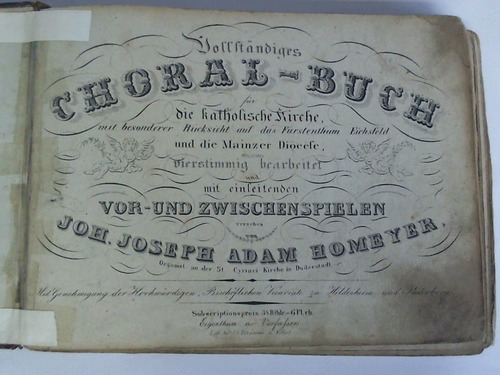 Vollständiges
CHORAL-BUCH
für
die katholische Kirche,
mit besonderer Rücksicht auf das Fürstenthum Eichsfeld
und die Mainzer Diocese,
vierstimmig bearbeitet
und
mit einleitenden
VOR- UND ZWISCHENSPIELEN
versehen
von
JOH. JOSEPH ADAM HOMEYER,
Organist an der St. Cyriaci Kirche in Duderstadt.
Mit Genehmigung der Hochwürdigen, Bischöflichen Vicariate zu Hildesheim und Paderborn.
Subscriptionspreis
Eigenthum des Verfassers